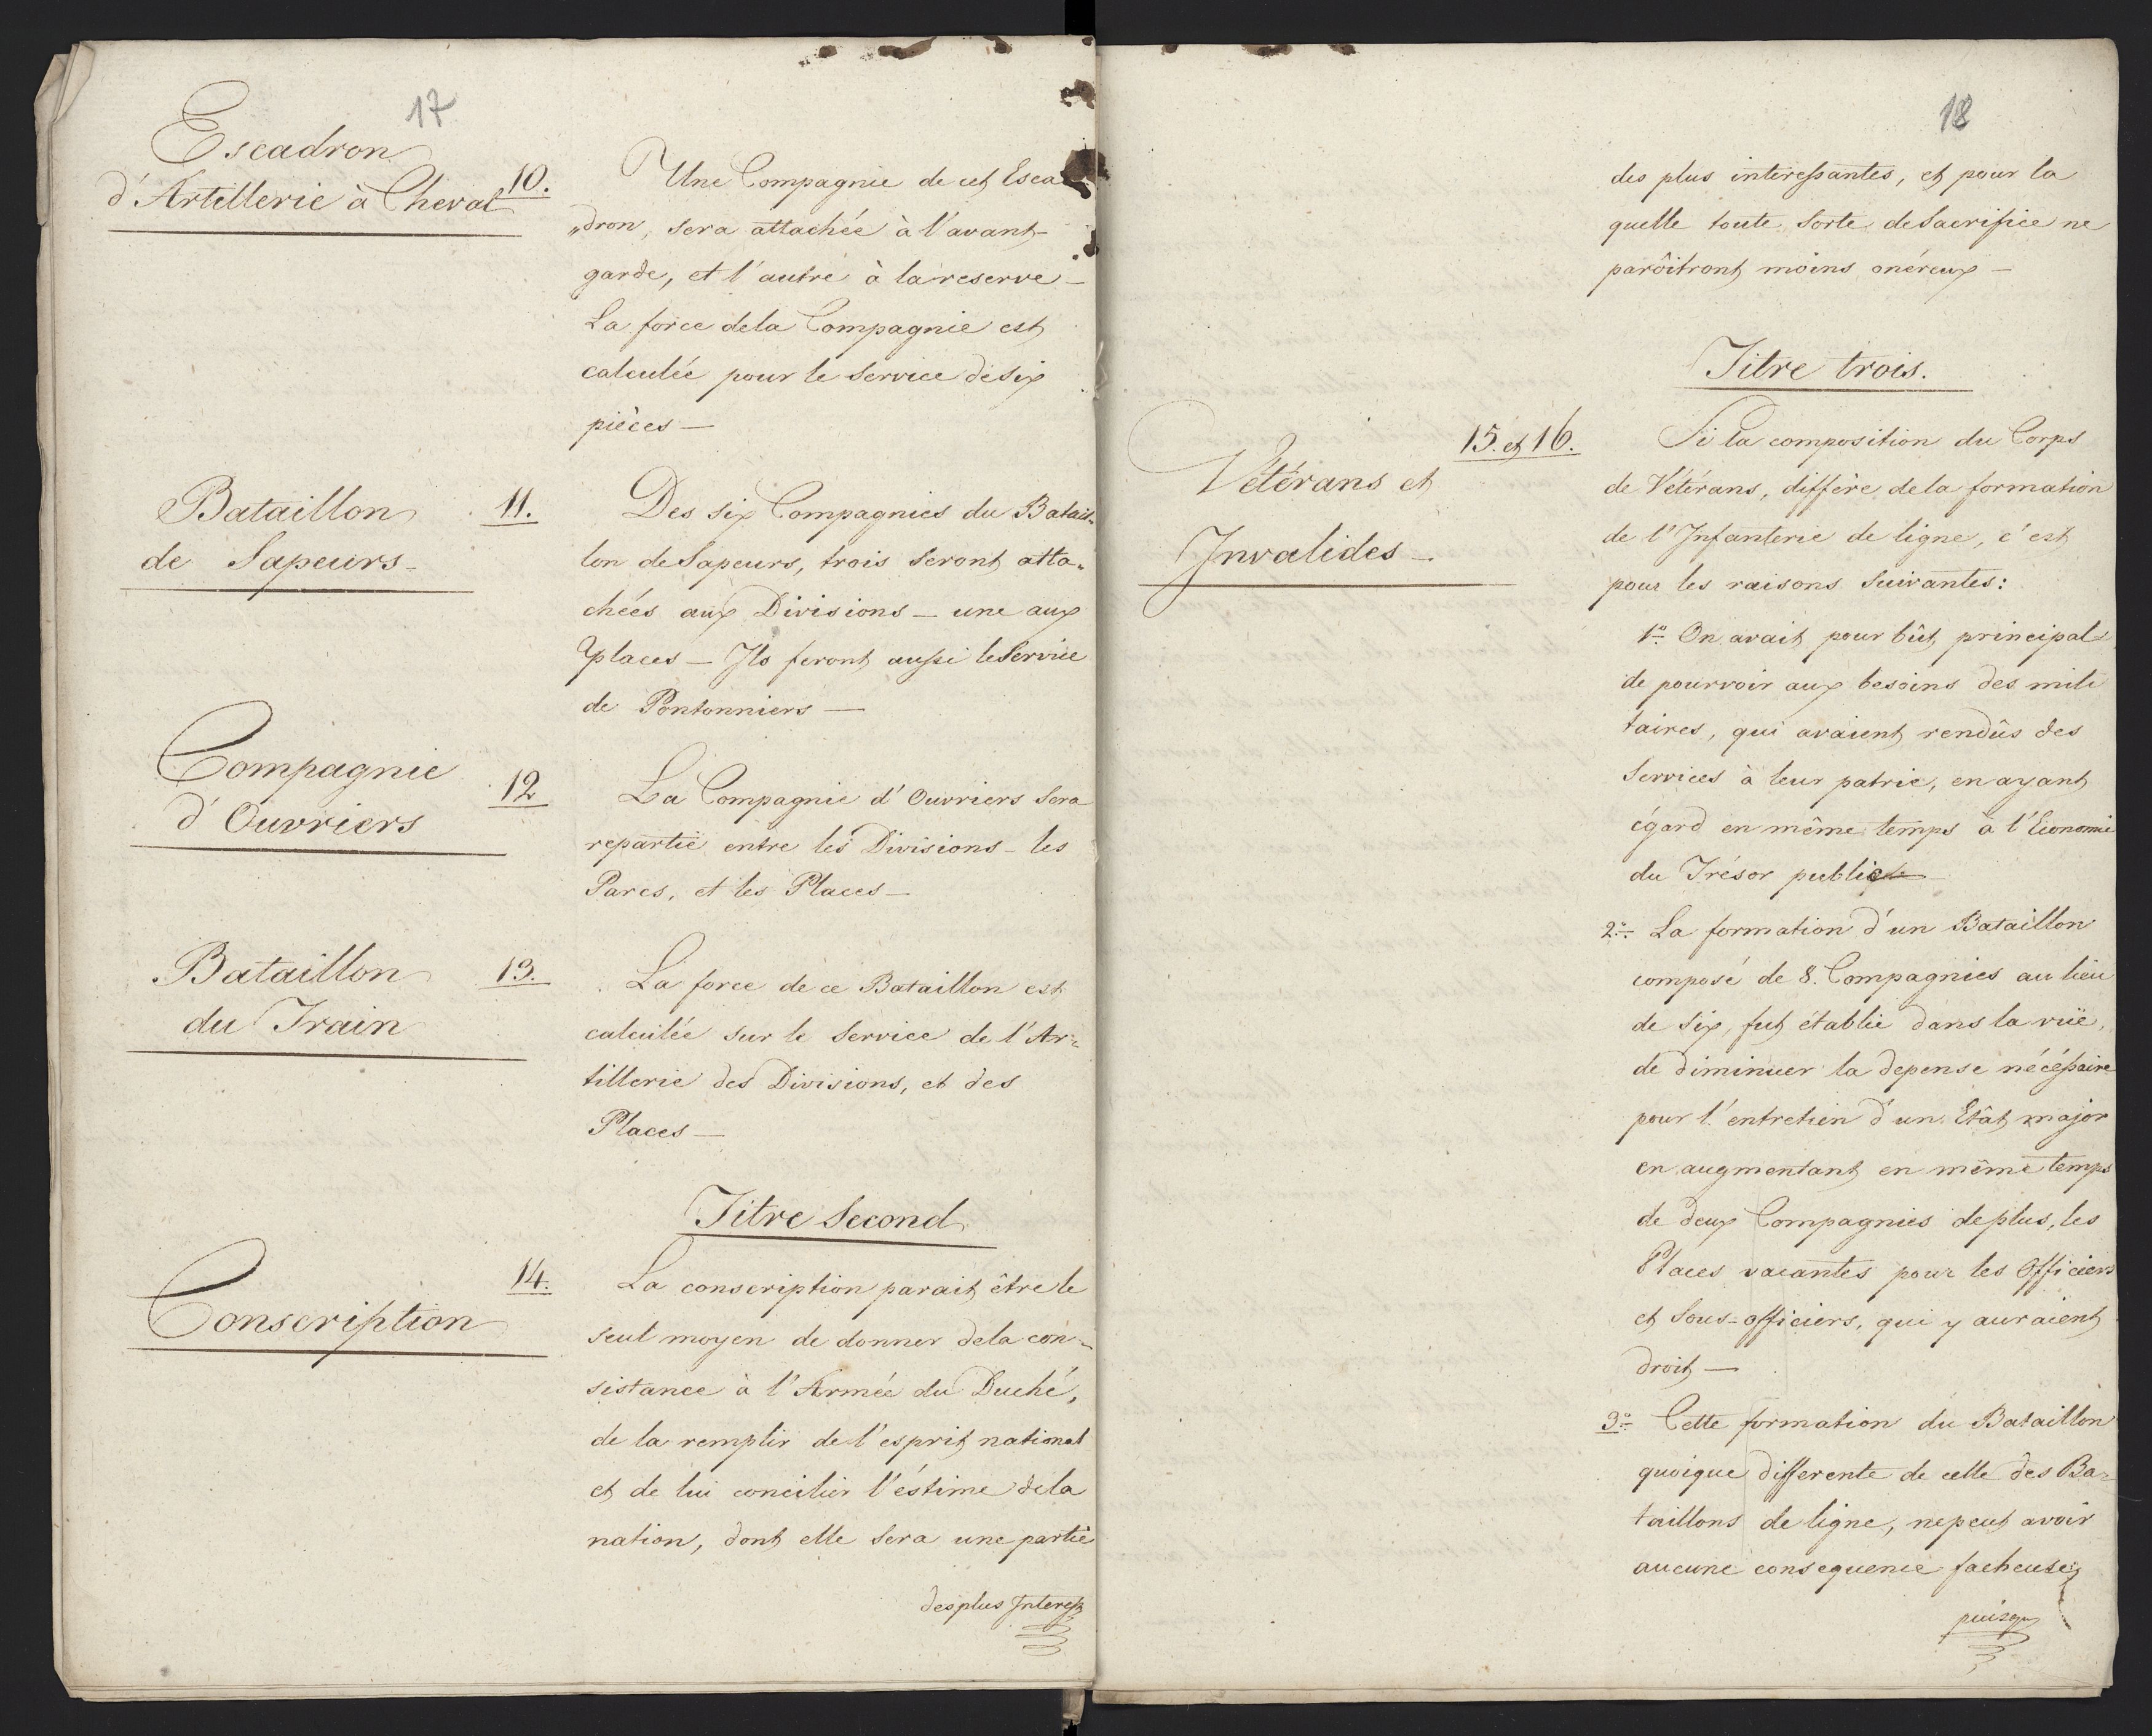 17
Escadron
d'Artillerie à Cheval
10.
Une Compagnie de cet Esca
„dron, sera attachée à l'avant-
garde, et l'autre à la reserve —
La force de la Compagnie est
calculée pour le service de six
pièces —
Bataillon
de Sapeurs —
11.
Des six Compagnies du Batail-
lon de Sapeurs, trois seront atta-
chées aux Divisions — une aux
places — Ils feront aussi le service
de Pontonniers —
Compagnie
d'Ouvriers
12
La Compagnie d'Ouvriers sera
repartie entre les Divisions — les
Parcs, et les Places —
Bataillon
du Train
13.
La force de ce Bataillon est
calculée sur le service de l'Ar-
tillerie des Divisions, et des
Places —
Titre Second
Conscription
14.
La conscription parait être le
seul moyen de donner de la con-
sistance à l'Armée du Duché,
de la remplir de l'esprit national
et de lui concilier l'éstime de la
nation, dont elle sera une partie
des plus Interess
18
des plus interessantes, et pour la
quelle toute sorte de Sacrifice ne
parôitront moins onéreux —
Titre trois.
Vétérans et
Invalides —
15. et 16.
Si la composition du Corps
de Vétérans, diffère de la formation
de l'Infanterie de ligne, c'est
pour les raisons suivantes:
1º On avait pour bût principal
de pourvoir aux besoins des mili
taires, qui avaient rendûs des
services à leur patrie, en ayant
égard en même temps à l'Economie
du Trésor public —
2º La formation d'un Bataillon
composé de 8. Compagnies au lieu
de six, fut établie dans la vüe,
de diminuer la depense nécéssaire
pour l'entretien d'un Etât major
en augmentant en même temps
de deux Compagnies de plus, les
Places vacantes pour les Officiers
et Sous-officiers, qui y auraient
droit —
3º Cette formation du Bataillon
quoique differente de celle des Ba-
taillons de ligne, ne peut avoir
aucune consequence facheuse,
puisqu